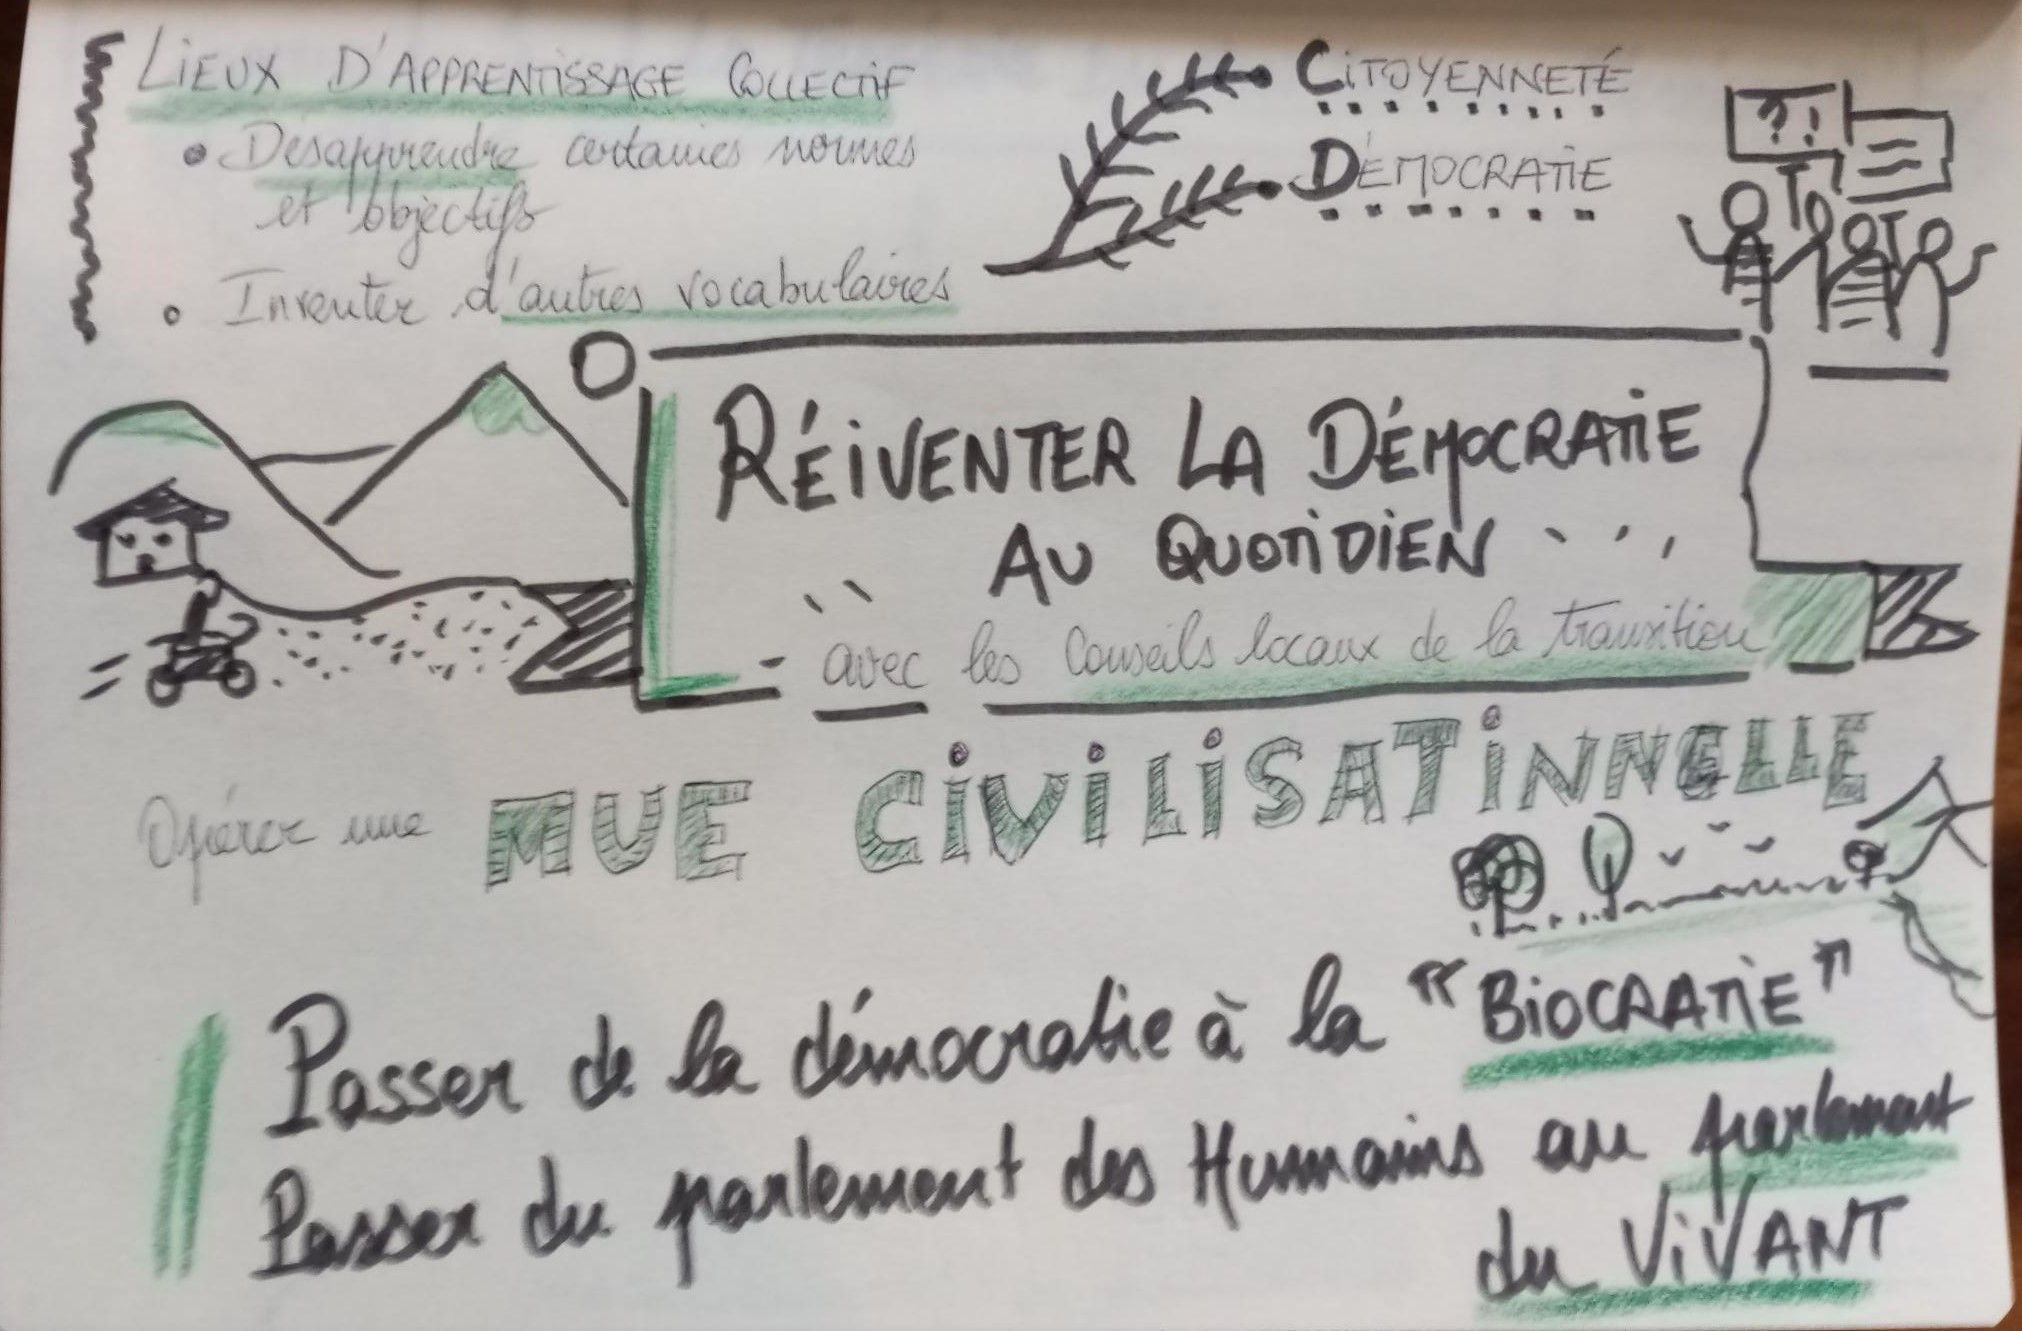 LIEUX D'APPRENTISSAGE COLLECTIF
• Désapprendre certaines normes
et objectifs
• Inventer d'autres vocabulaires
CITOYENNETÉ
DÉMOCRATIE
?!
RÉIVENTER LA DÉMOCRATIE
AU QUOTIDIEN
avec les Conseils locaux de la transition
Opérer une MUE CIVILISATINNELLE
Passer de la démocratie à la "BIOCRATIE"
Passer du parlement des Humains au parlement
du VIVANT